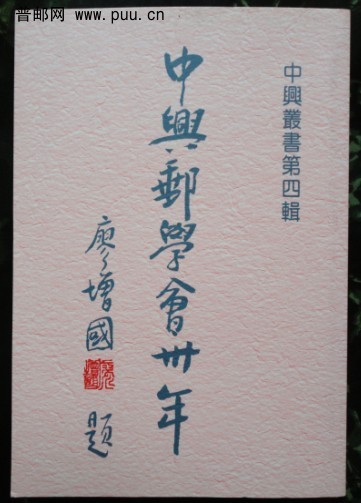 普邮网 www.puu.cn
中興叢書第四輯
中興郵學會卅年
廖增國
題